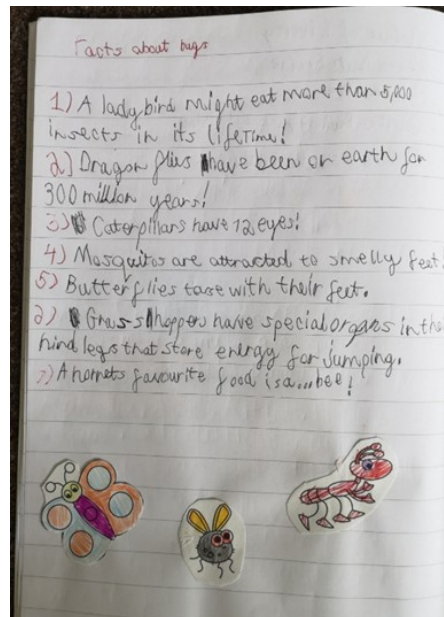 Facts about bugs
1) A ladybird might eat more than 5,000
insects in its lifetime!
2) Dragon flies have been on earth for
300 million years!
3) Caterpillars have 12 eyes!
4) Mosquitos are attracted to smelly feet.
5) Butterflies tase with their feet.
6) Grasshoppers have special organs in the
hind legs that store energy for jumping.
7) A hornets favourite food is a...bee!